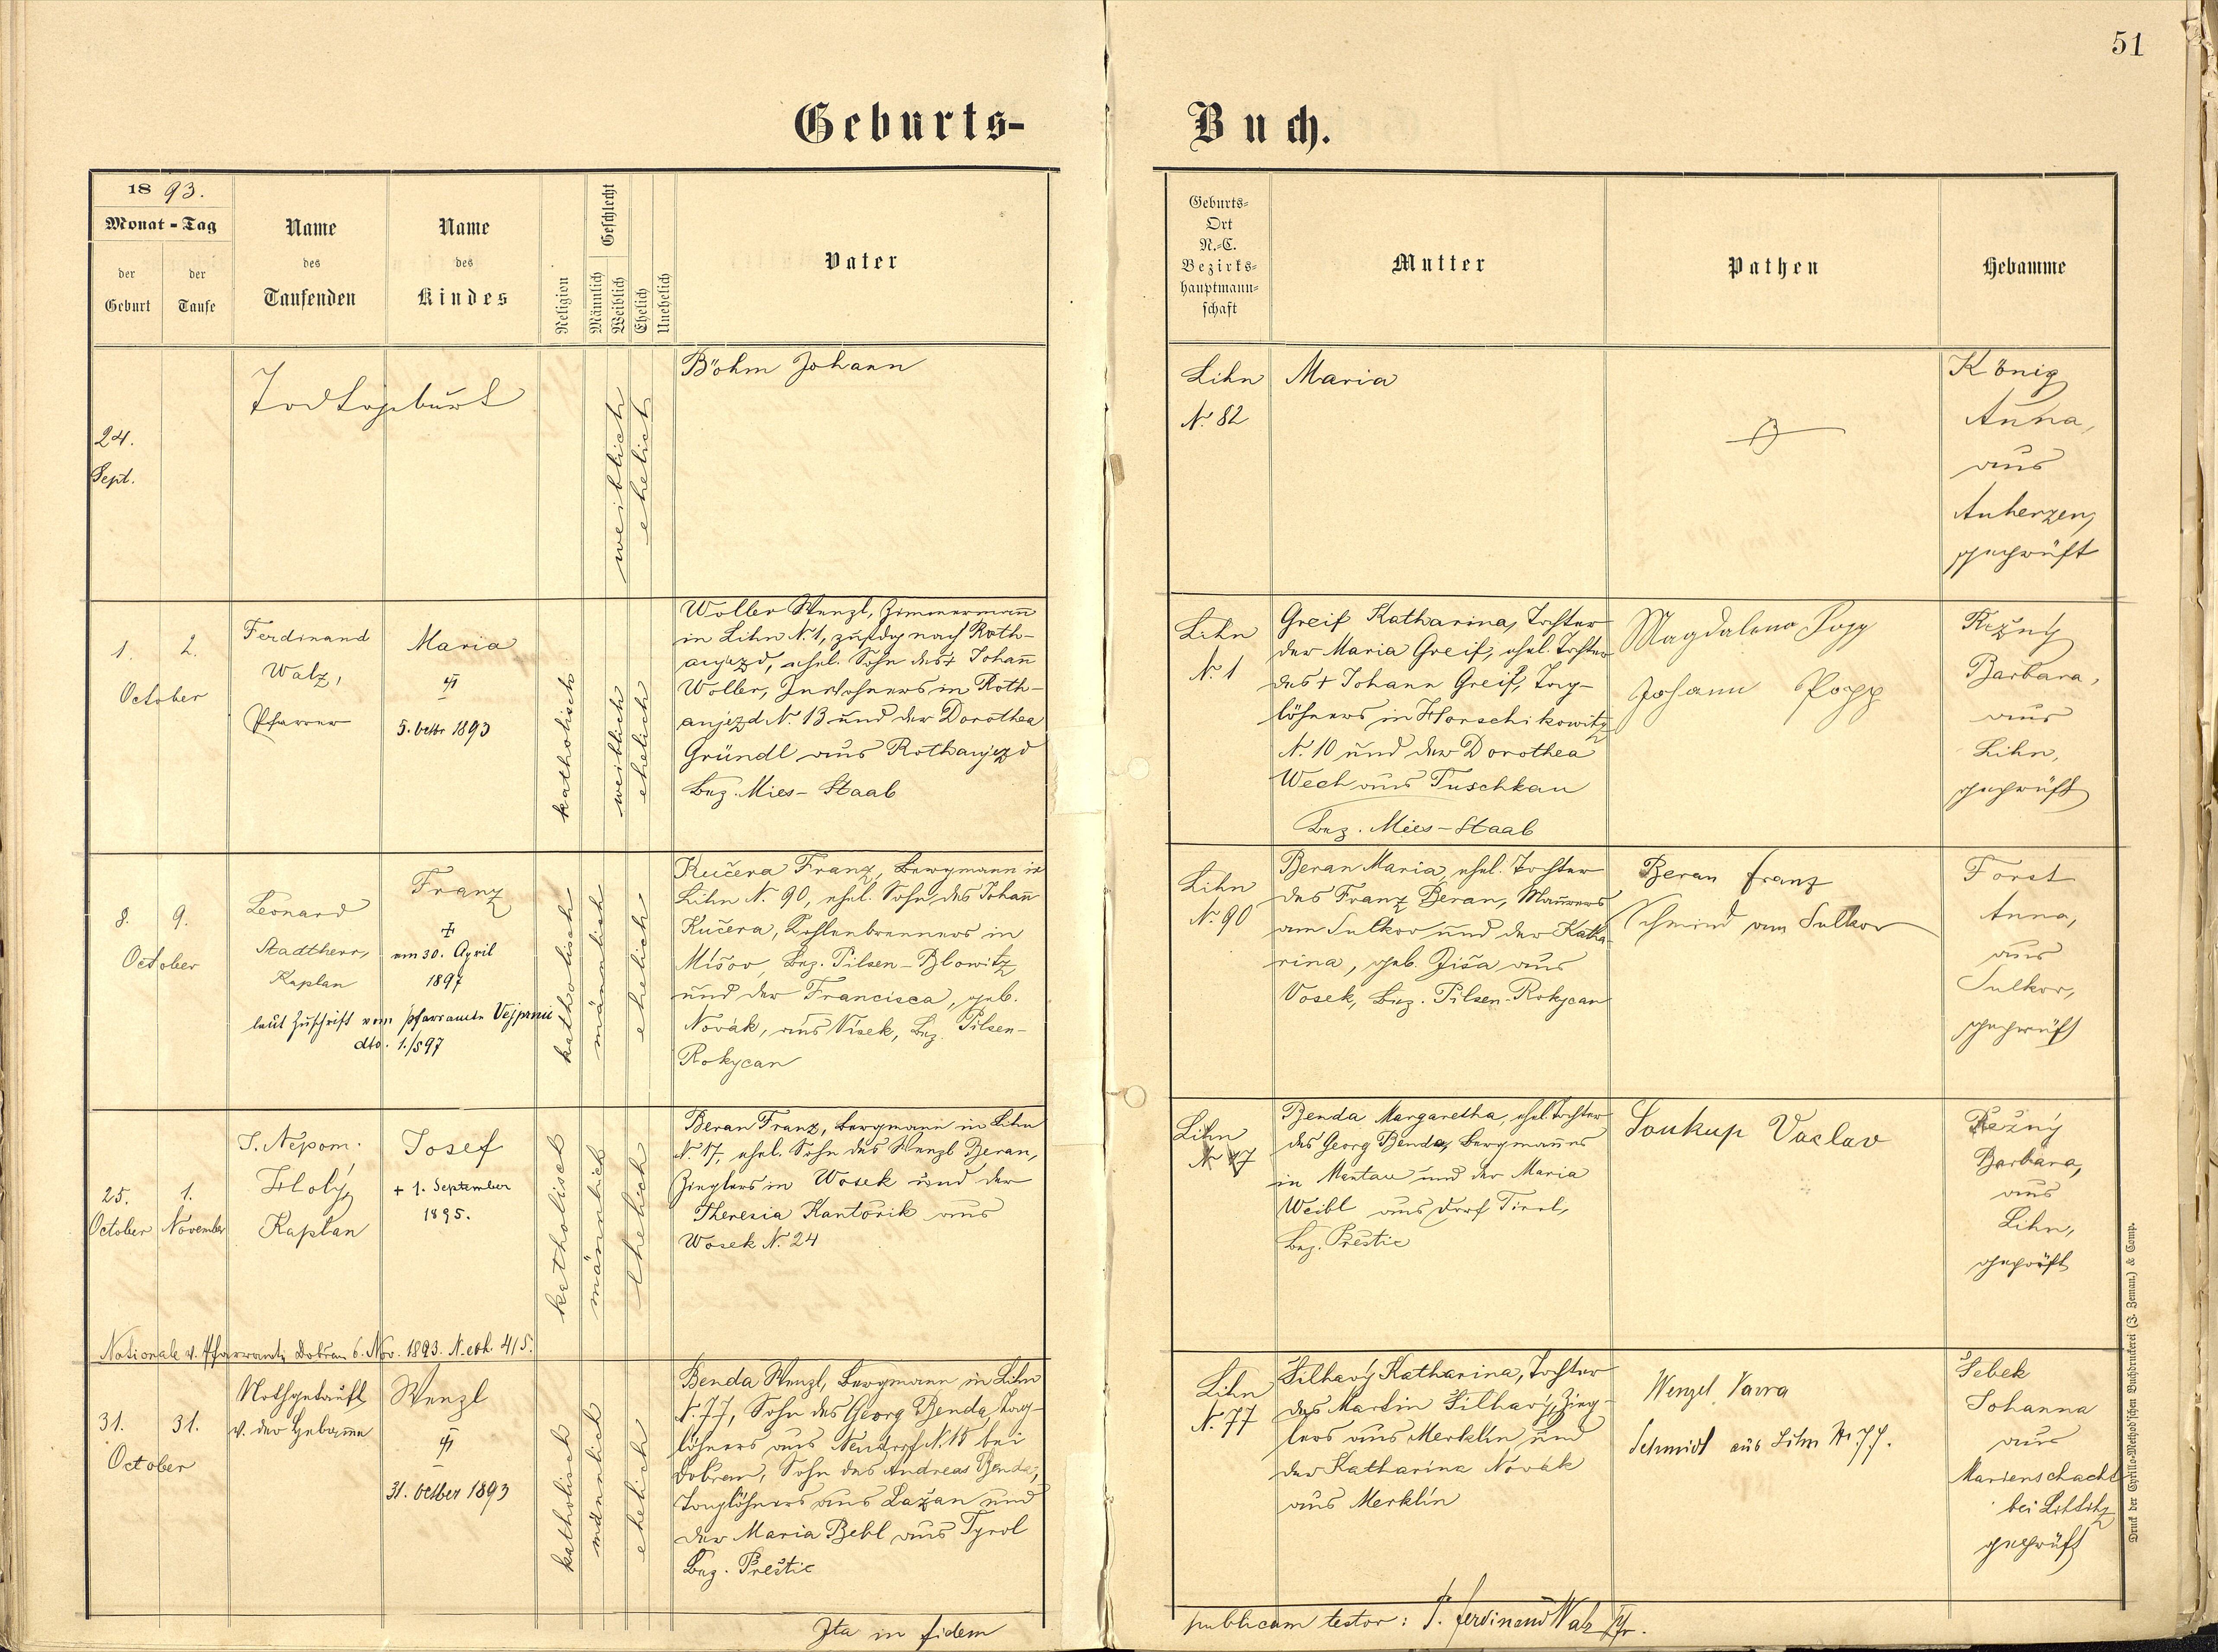 51
Geburts-Buch.
1893.
Monat-Tag
der Geburt
der Taufe
Name des Taufenden
Name des Kindes
Religion
Geschlecht
Männlich
Weiblich
Ehelich
Unehelich
Vater
Geburts-
Ort
N.-C.
Bezirks-
hauptmann-
schaft
Mutter
Pathen
Hebamme
24.
Sept.
Todtgeburt
weiblich
ehelich
Böhm Johann
Lihn
N. 82
Maria
König
Anna,
aus
Auherzen,
geprüft
1. 2.
October
Ferdinand
Walz,
Pfarrer
Maria
5. Octbr 1893
katholisch
weiblich
ehelich
Woller Wenzl, Zimmermann̄
in Lihn N. 1, zustdg nach Roth-
aujezd, ehel. Sohn des † Johan̄
Woller, Inwohners in Roth-
aujezd N. 13 und der Dorothea
Gründl aus Rothaujezd
Bez. Mies-Staab
Lihn
N. 1
Greif Katharina, Tochter
der Maria Greif, ehel. Tochter
des † Johann Greif, Tag-
löhners in Horschikowitz
N. 10 und der Dorothea
Wech aus Tuschkau
Bez. Mies-Staab
Magdalena Popp
Johann Popp
Režný
Barbara,
aus
Lihn,
geprüft
8. 9.
October
Leonard
Stadtherr,
Kaplan
Franz
am 30. April
1897
laut Zuschrift vom Pfarramte Vejprnic
dto. 1./5 97
katholisch
männlich
ehelich
Kučera Franz, Bergmann in
Lihn N. 90, ehel. Sohn des Johan̄
Kučera, Kohlenbrenners in
Mišov, Bez. Pilsen-Blowitz
und der Francisca, geb.
Novák, aus Visek, Bez. Pilsen-
Rokycan
Lihn
N. 90
Beran Maria, ehel. Tochter
des Franz Beran, Maurers
am Sulkov und der Katha-
rina, geb. Ziša aus
Vosek, Bez. Pilsen-Rokycan
Beran Franz
Schmied am Sulkov
Forst
Anna,
aus
Sulkov,
geprüft
25. 1.
October November
J. Nepom.
Holý,
Kaplan
Josef
+ 1. September
1895.
katholisch
männlich
ehelich
Beran Franz, Bergmann in Lihn
N. 17, ehel. Sohn des Wenzl Beran,
Zieglers in Wosek und der
Theresia Kantořik aus
Wosek N. 24
Lihn
N. 17
Benda Margaretha, ehel. Tochter
des Georg Benda, Bergman̄es
in Mantau und der Maria
Weibl aus Dorf Tirol,
Bez. Přestic
Soukup Vaclav
Režný
Barbara,
aus
Lihn,
geprüft
Nationale v. Pfarramte Dobřan 6. Nov. 1893. N. exh. 415.
31. 31.
October
Nothgetauft
v. der Hebam̄e
Wenzl
31. Octber 1893
katholisch
männlich
ehelich
Benda Wenzl, Bergmann in Lihn
N. 77, Sohn des Georg Benda, Tag-
löhners aus Neudorf N. 15 bei
Dobřan, Sohn des Andreas Benda,
Taglöhners aus Lažan und
der Maria Bebl aus Tyrol
Bez. Přestic
Lihn
N. 77
Šilhavý Katharina, Tochter
des Martin Šilhavý, Zieg-
lers aus Merklín und
der Katharina Novák
aus Merklín
Wenzel Vavra
Schmidt aus Lihn Nr. 77.
Šebek
Johanna
aus
Marienschacht
bei Littitz
geprüft
Ita in fidem publicam testor: P. Ferdinand Walz Pfr.
Druck der Cyrillo-Method'schen Buchdruckerei (J. Zeman) & Comp.